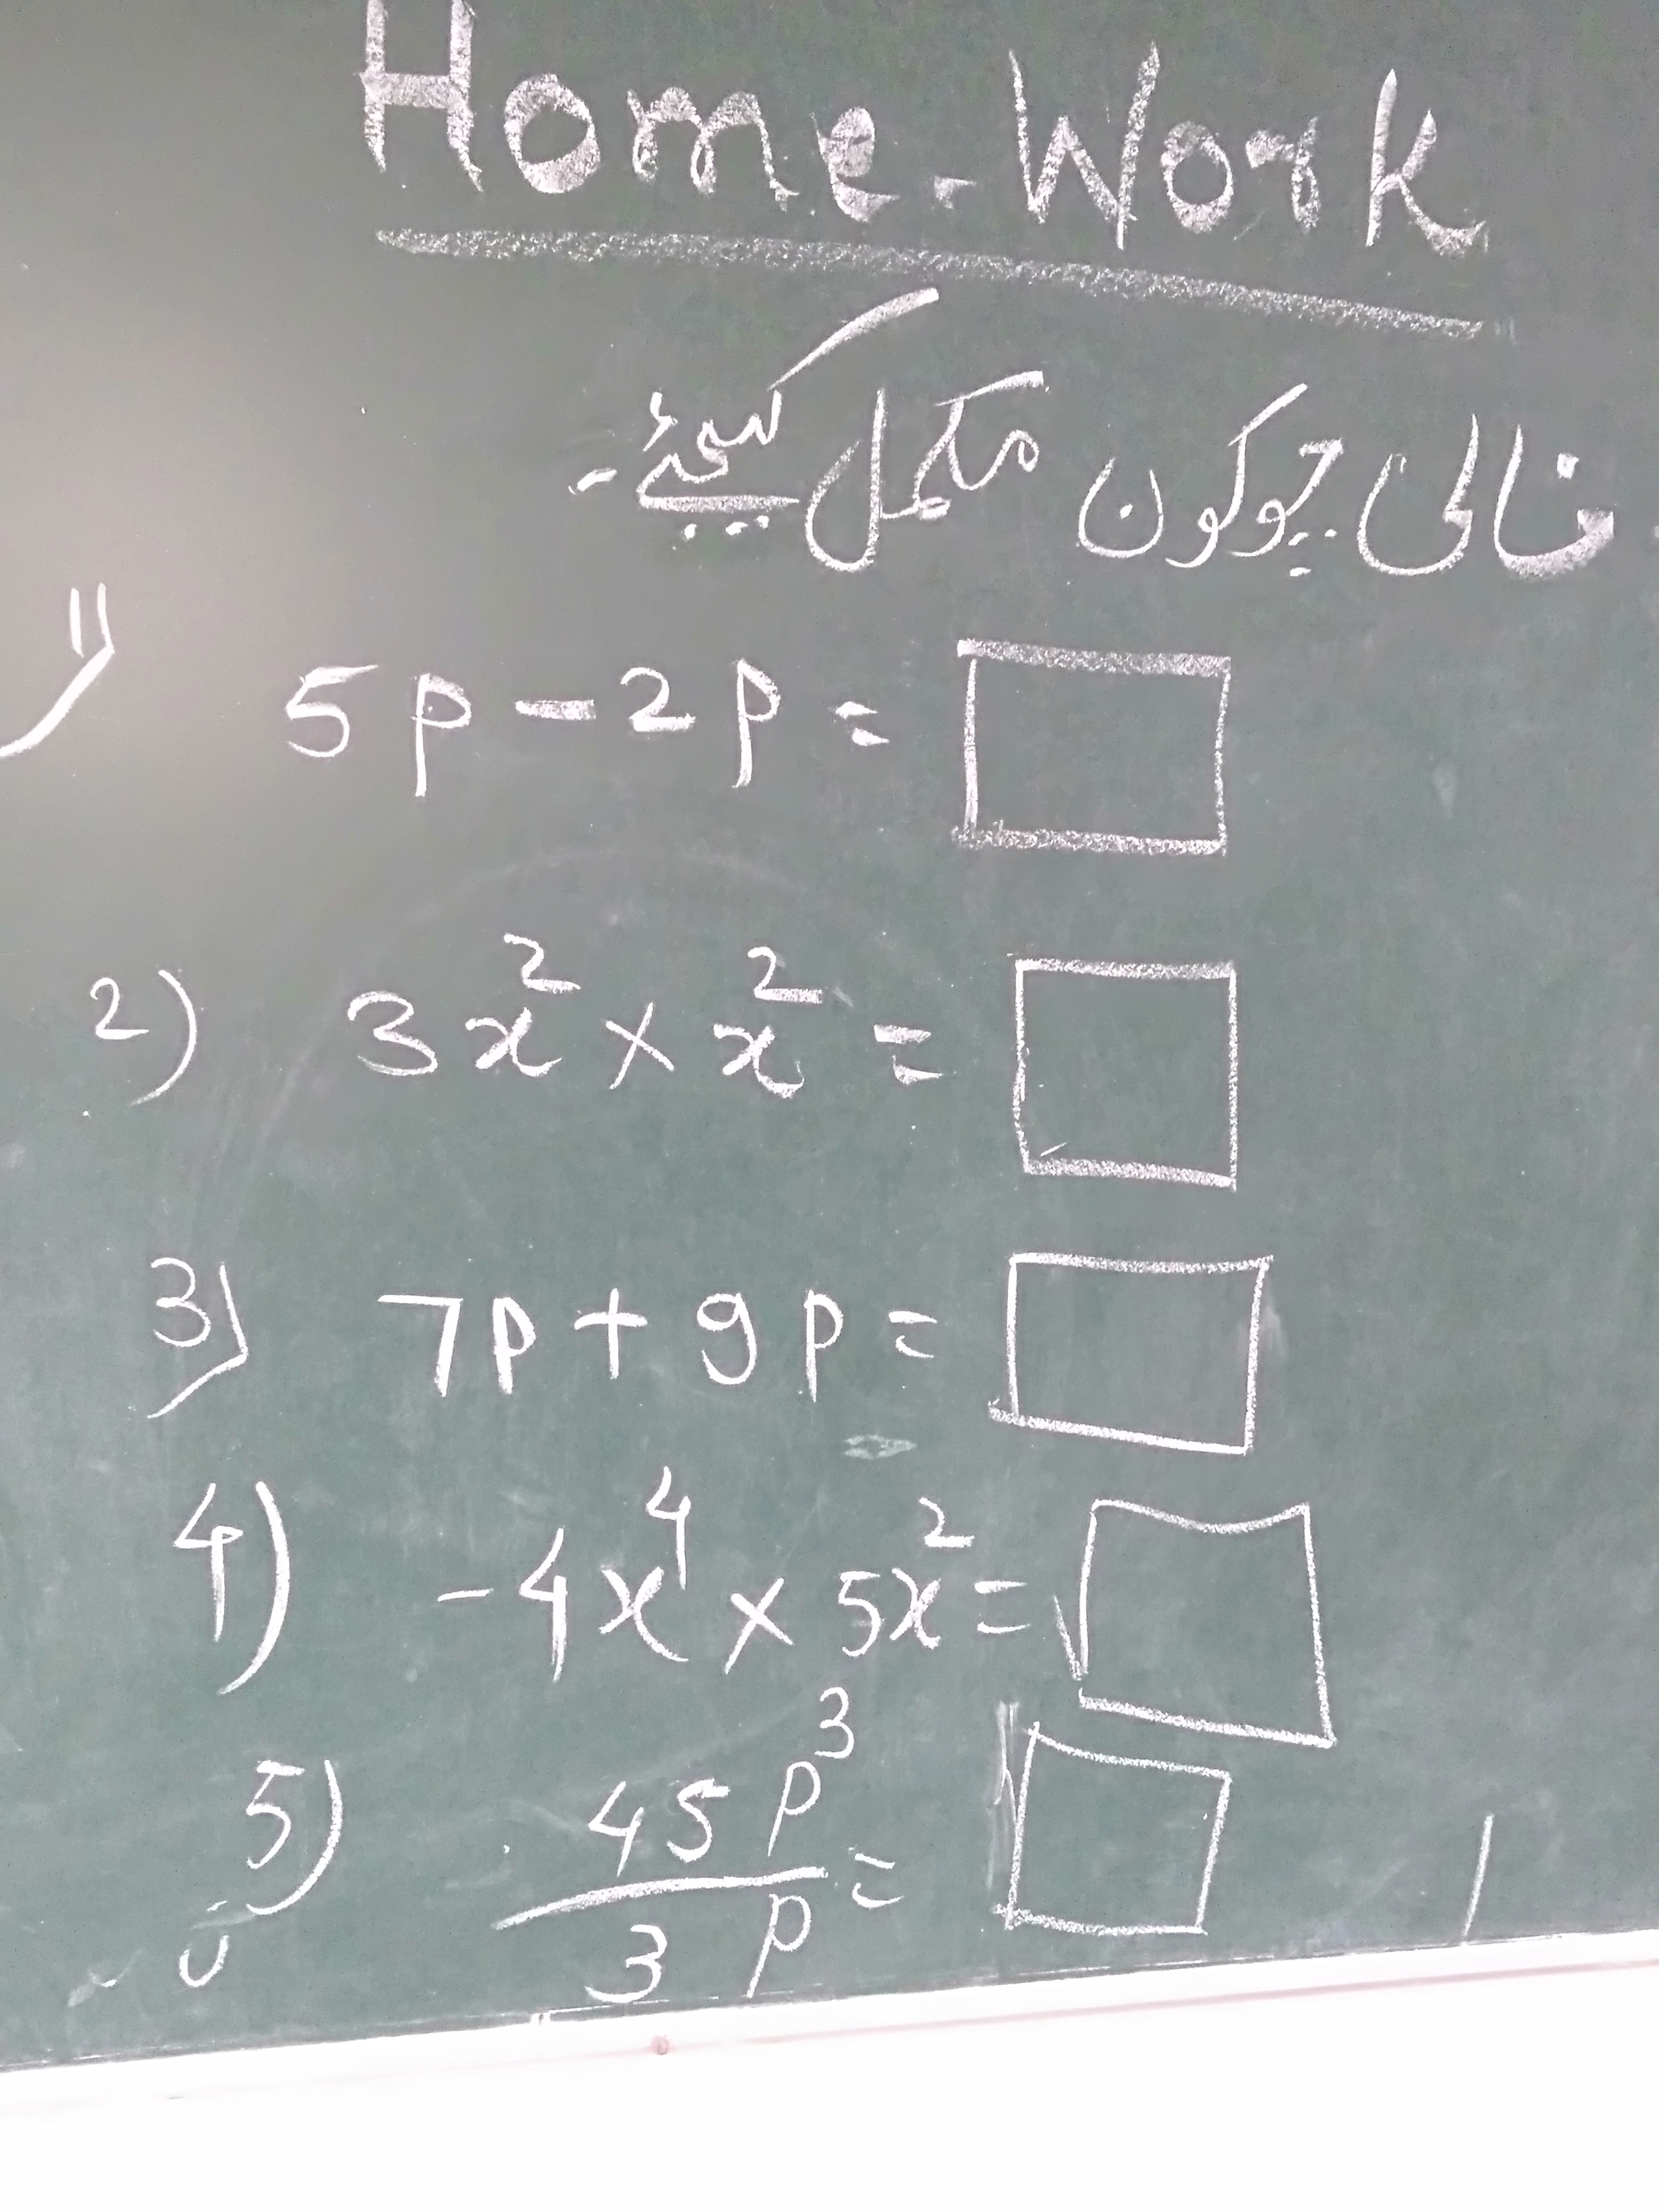 Home-Work
خالی چوکون مکمل کیجئے۔
1) 5p - 2p =
2) 3x² × x² =
3) 7p + 9p =
4) -4x⁴ × 5x² =
5) 45p³/3p =